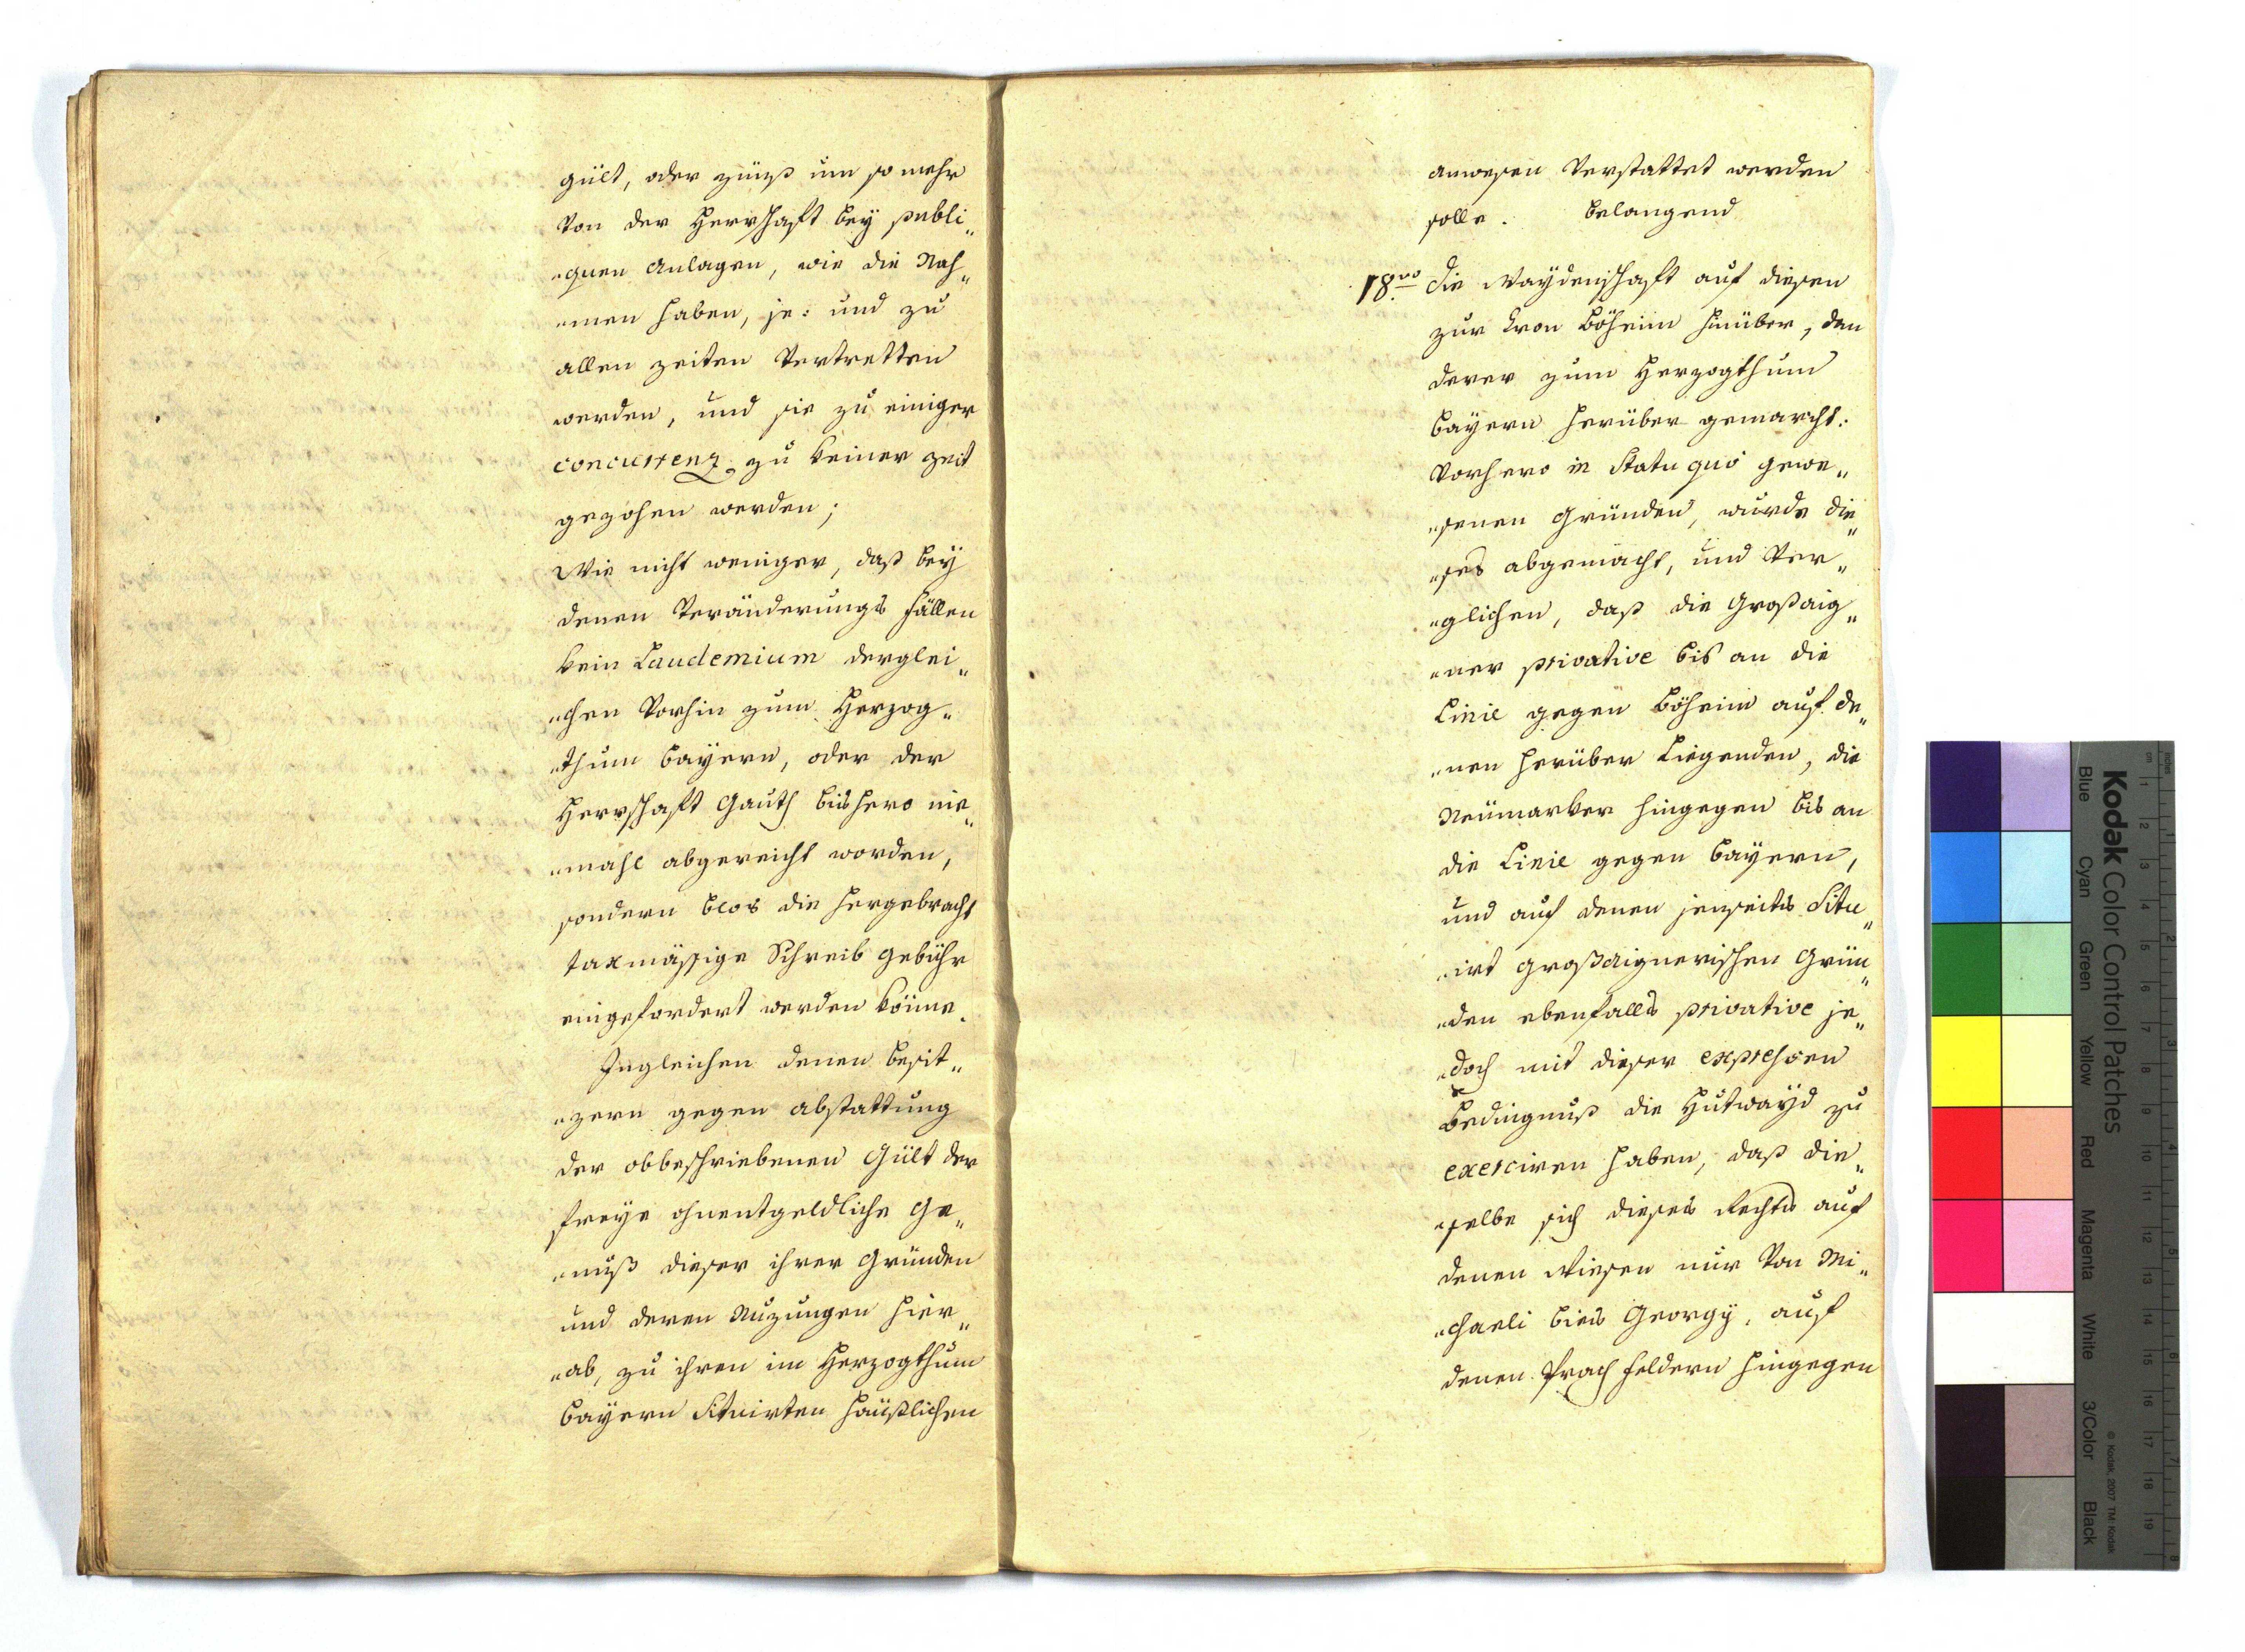 gült, oder zünß um so mehr
von der Herrschaft bey publi„
„quen Anlagen, wie die Nah„
„men haben, je: und zu
allen zeiten Vertretten
werden, und sie zu einiger
concurrenz zu keiner zeit
gezohen werden;
Wie nicht weniger, daß bey
denen Veränderungs fällen
kein Laudemium derglei„
„chen Vorhin zum Herzog„
„thum Bayern, oder der
Herrschaft Gauth bishero nie„
„mahl abgereicht worden,
sondern blos die hergebracht
taxmässige Schreib gebühr
eingefordert werden könne.
Ingleichen denen besit„
„zern gegen abstattung
der obbeschriebenen Gült der
freye ohnentgeldliche Ge„
„nuß dieser ihrer Gründen
und deren Nuzungen hier„
„ab, zu ihren im Herzogthum
Bayern Situirten häußlichen
anwesen Verstattet werden
solle. belangend
18.vo die Waydenschaft auf diesen
zur Cron Böheim hinüber, dan
derer zum Herzogthum
Bayern herüber gemarcht:
Vorhero in Statu quo gewe„
„senen Gründen, wurde die„
„ses abgemacht, und Ver„
„glichen, daß die Großaig„
„ner privative bis an die
Linie gegen Böheim auf de„
„nen herüber Liegenden, die
Neümarker hingegen bis an
die Linie gegen Bayern,
und auf denen jenseits Situ„
„irt großaignerischen Grün„
„den ebenfalls privative je„
„doch mit dieser expressen
Bedingnuß die Hutwayd zu
exerciren haben, daß die„
„selbe sich dieses Rechts auf
denen Wiesen nur Von Mi„
„chaeli bies Georgÿ, auf
denen Prach feldern hingegen
Kodak Color Control Patches
Blue Cyan Green Yellow Red Magenta White 3/Color Black
© Kodak, 2007 TM: Kodak
inches 1 2 3 4 5 6 7 8
cm 1 2 3 4 5 6 7 8 9 10 11 12 13 14 15 16 17 18 19